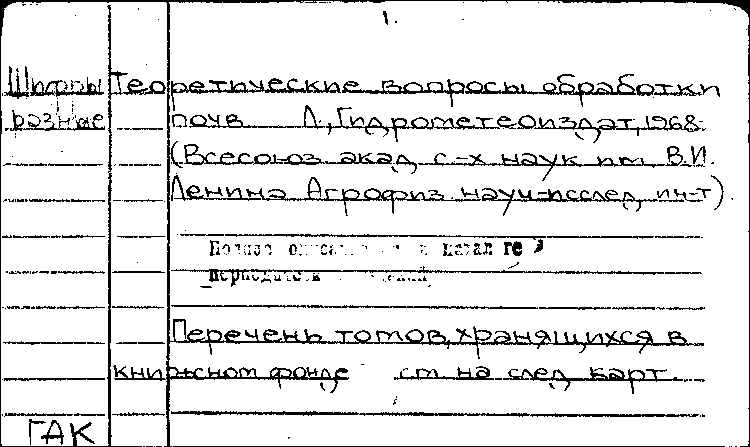 1.
Шифры Теоретические вопросы обработки
разные почв Л., Гидрометеоиздат, 1968-
(Всесоюз акад с-х наук им. В.И.
Ленина Агрофиз науч-исслед, ин-т).
Полное в катал ге
периодических
Перечень томов, хранящихся в
книжном фонде см на след карт.
ГАК